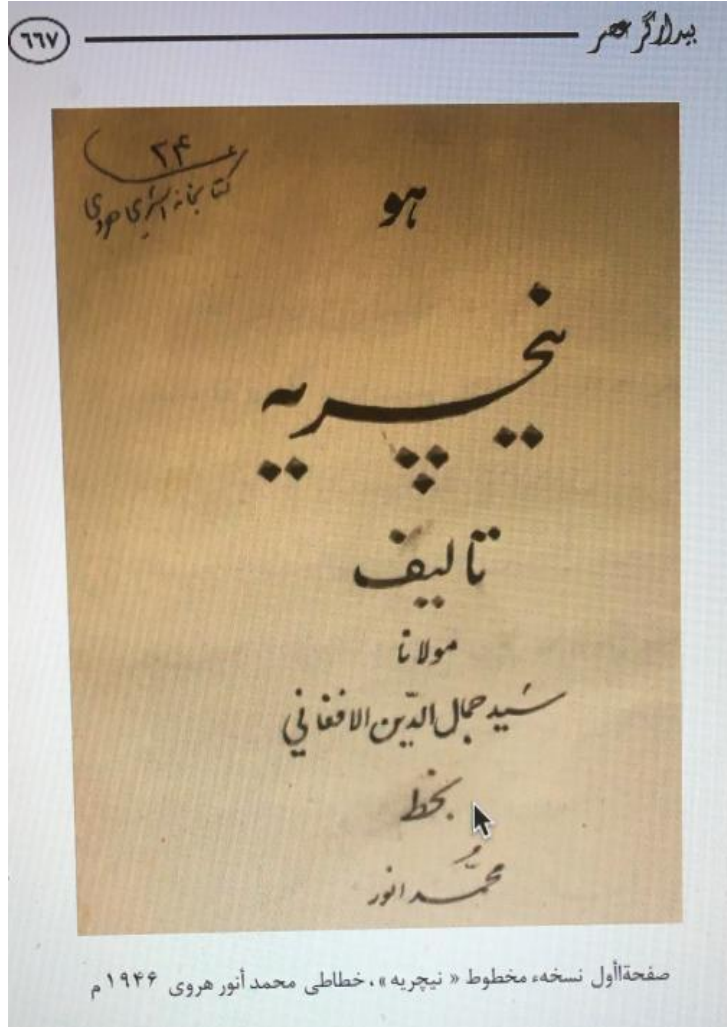 بیدارگر عصر
٦٦٧
۲۴
کتابخانه هروی
هو
نیچریه
تالیف
مولانا
سَید جمال الدّین الافغاني
بخط
محمّد انور
صفحةاأول نسخهء مخطوط « نیچریه »، خطاطی محمد أنور هروی ۱۹۴۶ م